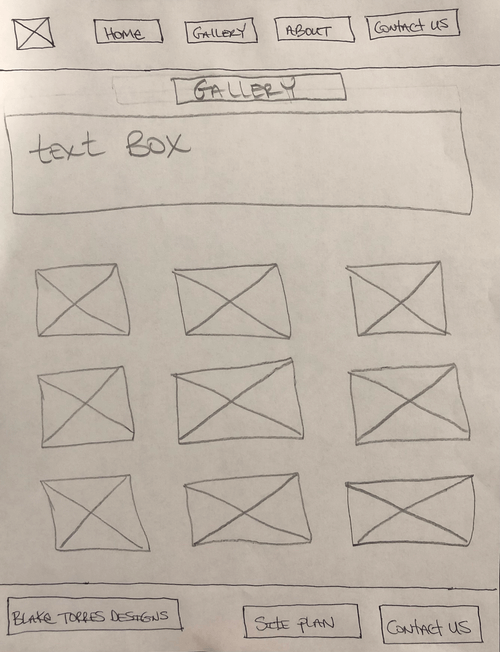 HOME GALLERY ABOUT CONTACT US
GALLERY
text BOX
BLAKE TORRES DESIGNS SITE PLAN CONTACT US